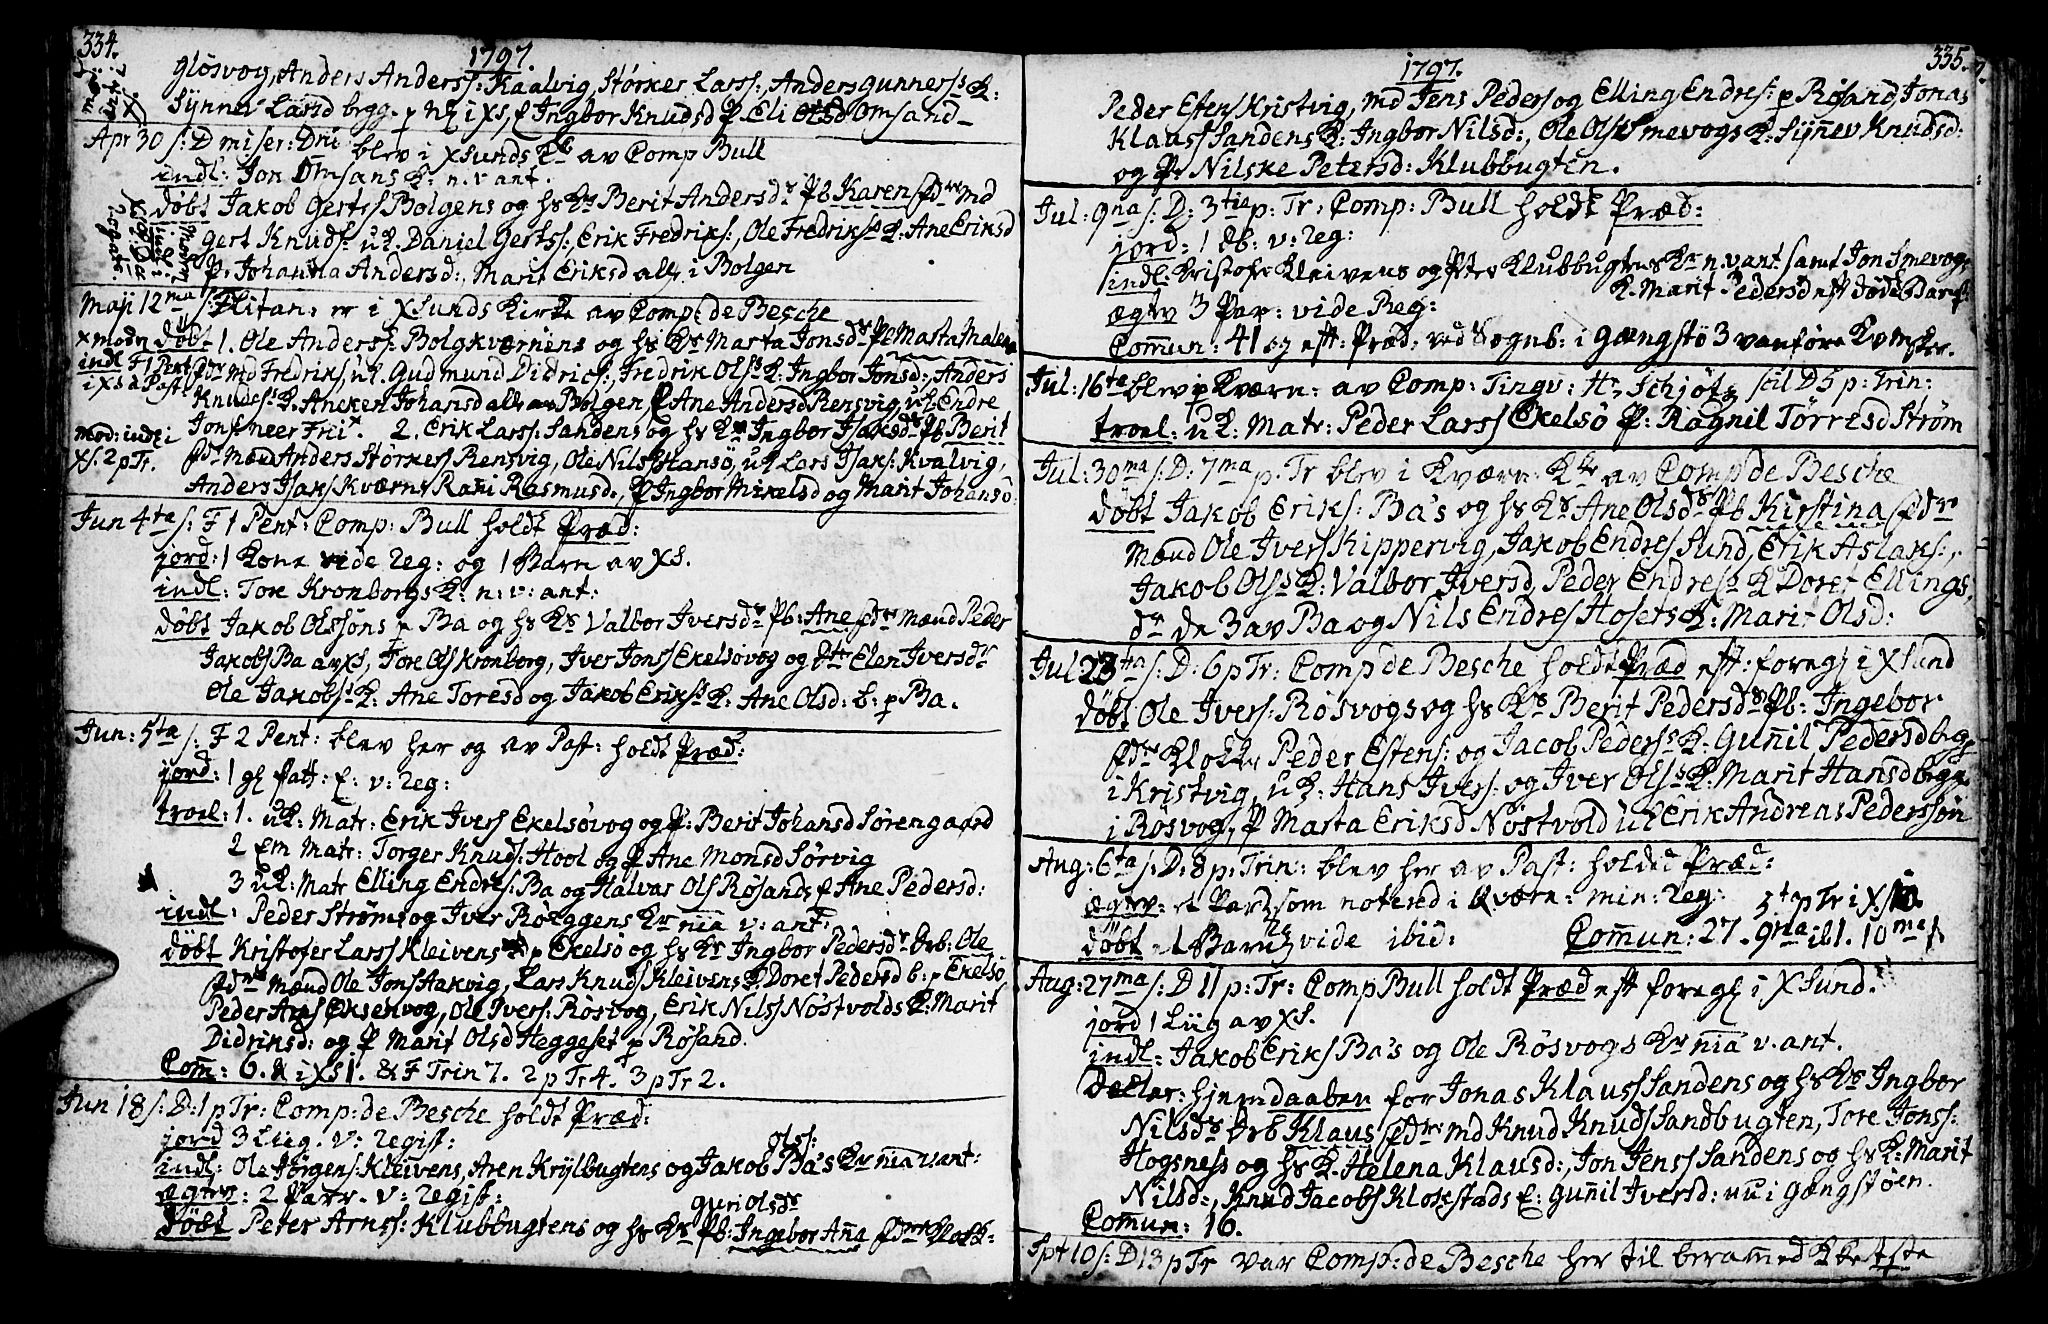 334.
1797.
Glösvog, Anders Anderss: Kaalvig, Störker Larss: Anders Gunnerss K:
Synnev Larsd begg. p N i XS, Ingbor Knudsd P. Eli Olsd Omsand
Apr 30 s: D miser: Dni blev i XSunds K av Comp Bull
indl: Jon Omsans K: n. v ant.
döbt Jakob Gertss Bolgens og hs Ks Berit Andersds Pb Karen fd md
Gert Knuds: uk. Daniel Gertss: Erik Fredriks:, Ole Fredrikss K: Ane Eriksd
P. Johanna Andersd:, Marit Eriksd all i Bolgen
Maji 12ma s: F litan: er i XSunds Kirke av Comp: de Besche
döbt 1. Ole Anderss: Bolgkværnens og hs Ks Marta Jonsds Pb Marta Malena
indl F 1 Pent
i XS a Past
md Fredriks, uk. Gudmund Didrics:, Fredrik Olss K: Ingbor Jonsd:, Anders
Knudss K: Aneken Johansd all av Bolgen P Ane Andersd Rensvig, uk Endre
mod: indl i
XS: 2 p Tr.
Jons neer Frit. 2. Erik Larss: Sandens og hs Ks Ingbor Isaksds Pb Berit
fdr Mænd Anders Störkers Rensvig, Ole Nilss Hansö, uk Lars Isaks: Kvalvig,
Anders Isaks Kværns Rani Rasmusd., P Ingbor Mikelsd og Marit Johansd:
Jun 4ta s: F 1 Pent: Comp: Bull holdt Præd:
jord: 1 Kone vide Reg: og 1 Barn av XS.
indl: Tore Kronborgs K: n: v: ant:
döbt Jakob Olssöns p Ba og hs Ks Valbor Iversds Pb: Ane fdre Mænd Peder
Jakobs Ba av XS, Tore Ols Kronborg, Iver Jonss Ekelsövog og Elen Iversdr
Ole Jakobss K: Ane Toresd og Jakob Erikss K: Ane Olsd: b: p Ba.
Jun: 5ta s: F 2 Pent: blev her og av Past: holdt Præd:
jord: 1 gl fatt: E: v: Reg:
trol: 1. uk: Matr: Erik Ivers Ekelsövog og P: Berit Johansd Sörengaard
2 Em Matr: Torger Knuds: Hool og P Ane Monsd Sörvig
3 uk: Matr Elling Endres: Ba og Halvar Ols Rösands E Ane Pedersd:
indl: Peder Ströms og Iver Röeggens Kr nia v: ant:
döbt Kristofer Larss Kleivens p Ekelsö og hs Ks Ingbor Pedersds Drb: Ole
fdre Mænd Ole Jons Aakvig, Lars Knuds Kleivens K Doret Pedersd b: p Ekelsö
Peder Arns Eksenvog, Ole Ivers: Rösvog, Erik Nilss Nöstvolds K: Marit
Didrinsd: og P Marit Olsd Heggeset p Rösand.
Com: 6. & i XS 1. & F Trin 7. 2 p Tr 4. 3 p Tr 2.
Jun 18 s: D: 1 p Tr: Comp: de Besche holdt Præd:
jord 3 Liig. v: Regist:
olss:
indl: Ole Jörgens: Kleivens, Aren Krylbugtens og Jakob Ba's Kr nia v ant:
ægtev: 2 Parr. v: Regist:
Guri Olsds
döbt Peter Arnss: Klubbugtens og hs Ks Pb: Ingebor Aña fdre Klokk:
335.
1797.
Peder Estens Kristvig, Md Jens Peders og Elling Endres: p Rösand, Jonas
Klauss Sandens K: Ingbor Nilsd:, Ole Olss Smevogs K: Synnev Knudsd:
og P. Nilske Petersd: Klubbugten.
Jul: 9na s: D: 3tia p: Tr: Comp: Bull holdt Præd:
jord: 1 db: v: Reg:
indl: Kristofr Kleivens og Peter Klubbugtens Kr n. vant samt Jon Smevogs
K: Marit Pedersd eft död Barns
ægtev 3 Par: vide Reg:
Comun: 41 og eft: Præd: ved Sognb: i Gængstö 3 vanföre Komster.
Jul: 16ta blev i Kværn: av Comp: Tingv: Hr Schjötz scil D 5 p: Trin:
trol: uk: Matr: Peder Larss Ekelsö P: Ragnil Törresd Ström
Jul: 30ma s: D: 7ma p: Tr blev i Kværn: Kke av Comp de Besche
döbt Jakob Eriks: Ba's og hs Ks Ane Olsds Pb Kirstina fdre
Mænd Ole Ivers Kippervig, Jakob Endres Sund, Erik Aslaks:,
Jakob Olss K: Valbor Iversd, Peder Endress K Doret Ellings
dr de 3 av Ba og Nils Endres Hosets K: Marit Olsd:
Jul 23tia s: D: 6 p Tr: Comp de Besche holdt Præd eft: foregl i XSund
döbt Ole Ivers: Rösvogs og hs Ks Berit Pedersds Pb: Ingebor
fdre Klokkr Peder Estens: og Jacob Pederss K: Guñil Pedersd begg
i Kristvig, uk: Hans Ivers: og Iver Olss K: Marit Hansd begge
i Rosvog, P Marta Eriksd Nöstvold uk Erik Andreas Pederssön
Aug: 6ta s: D: 8 p: Trin: blev her av Past: holdt Præd:
ægtev: et Par som noterd i Kværn: min: Reg:
döbt 1 Barn vide ibid: Comun: 27. 9na: i XS 1. 10ma 1.
Aug: 27ma s: D 11 p: Tr: Comp Bull holdt Præd eft foregl i XSund.
jord 1 Liig av XS.
indl: Jakob Eriks Ba's og Ole Rösvogs Kr nia v. ant.
Declar: hjemdaaben for Jonas Klauss Sandens og hs Ks Ingbor
Nilsds Drb Klaus fdre md Knud Knuds Sandbugten, Tore Jonss:
Hogsness og hs K. Helena Klausd:, Jon Jenss Sandens og hs K: Marit
Nilsd:, Knud Jacobs Klokstads E: Guñil Iversd: uu i Gængstöen.
Comun: 16.
Spt 10 s: D 13 p Tr var Comp: de Besche her til berammed Kkefeste